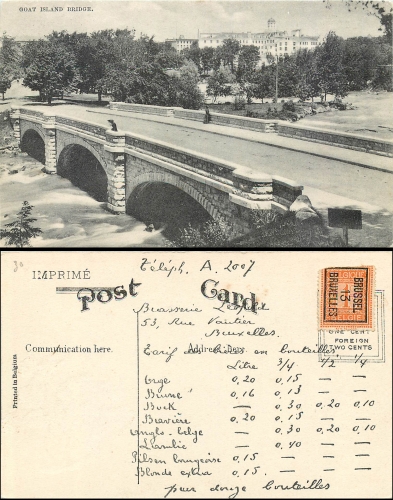 GOAT ISLAND BRIDGE.
Téléph. A. 2007
IMPRIMÉ
Post Card.
BRUSSEL
13
BRUXELLES
BELGIQUE
Brasserie
53, Rue Vautier
Bruxelles.
ONE CENT
FOREIGN
TWO CENTS
Communication here. Address here.
Tarif des bières en bouteilles
Litre 3/4 1/2 1/4
Orge 0,20 0,15 — —
Brune 0,16 0,13 — —
Bock — 0,30 0,20 0,10
Bavière 0,20 0,15 — —
Anglo-belge — 0,30 0,20 0,10
Lambic — 0,40 — —
Pilsen brugeoise 0,15 — — —
Blonde extra 0,15 — — —
pour douze bouteilles
Printed in Belgium